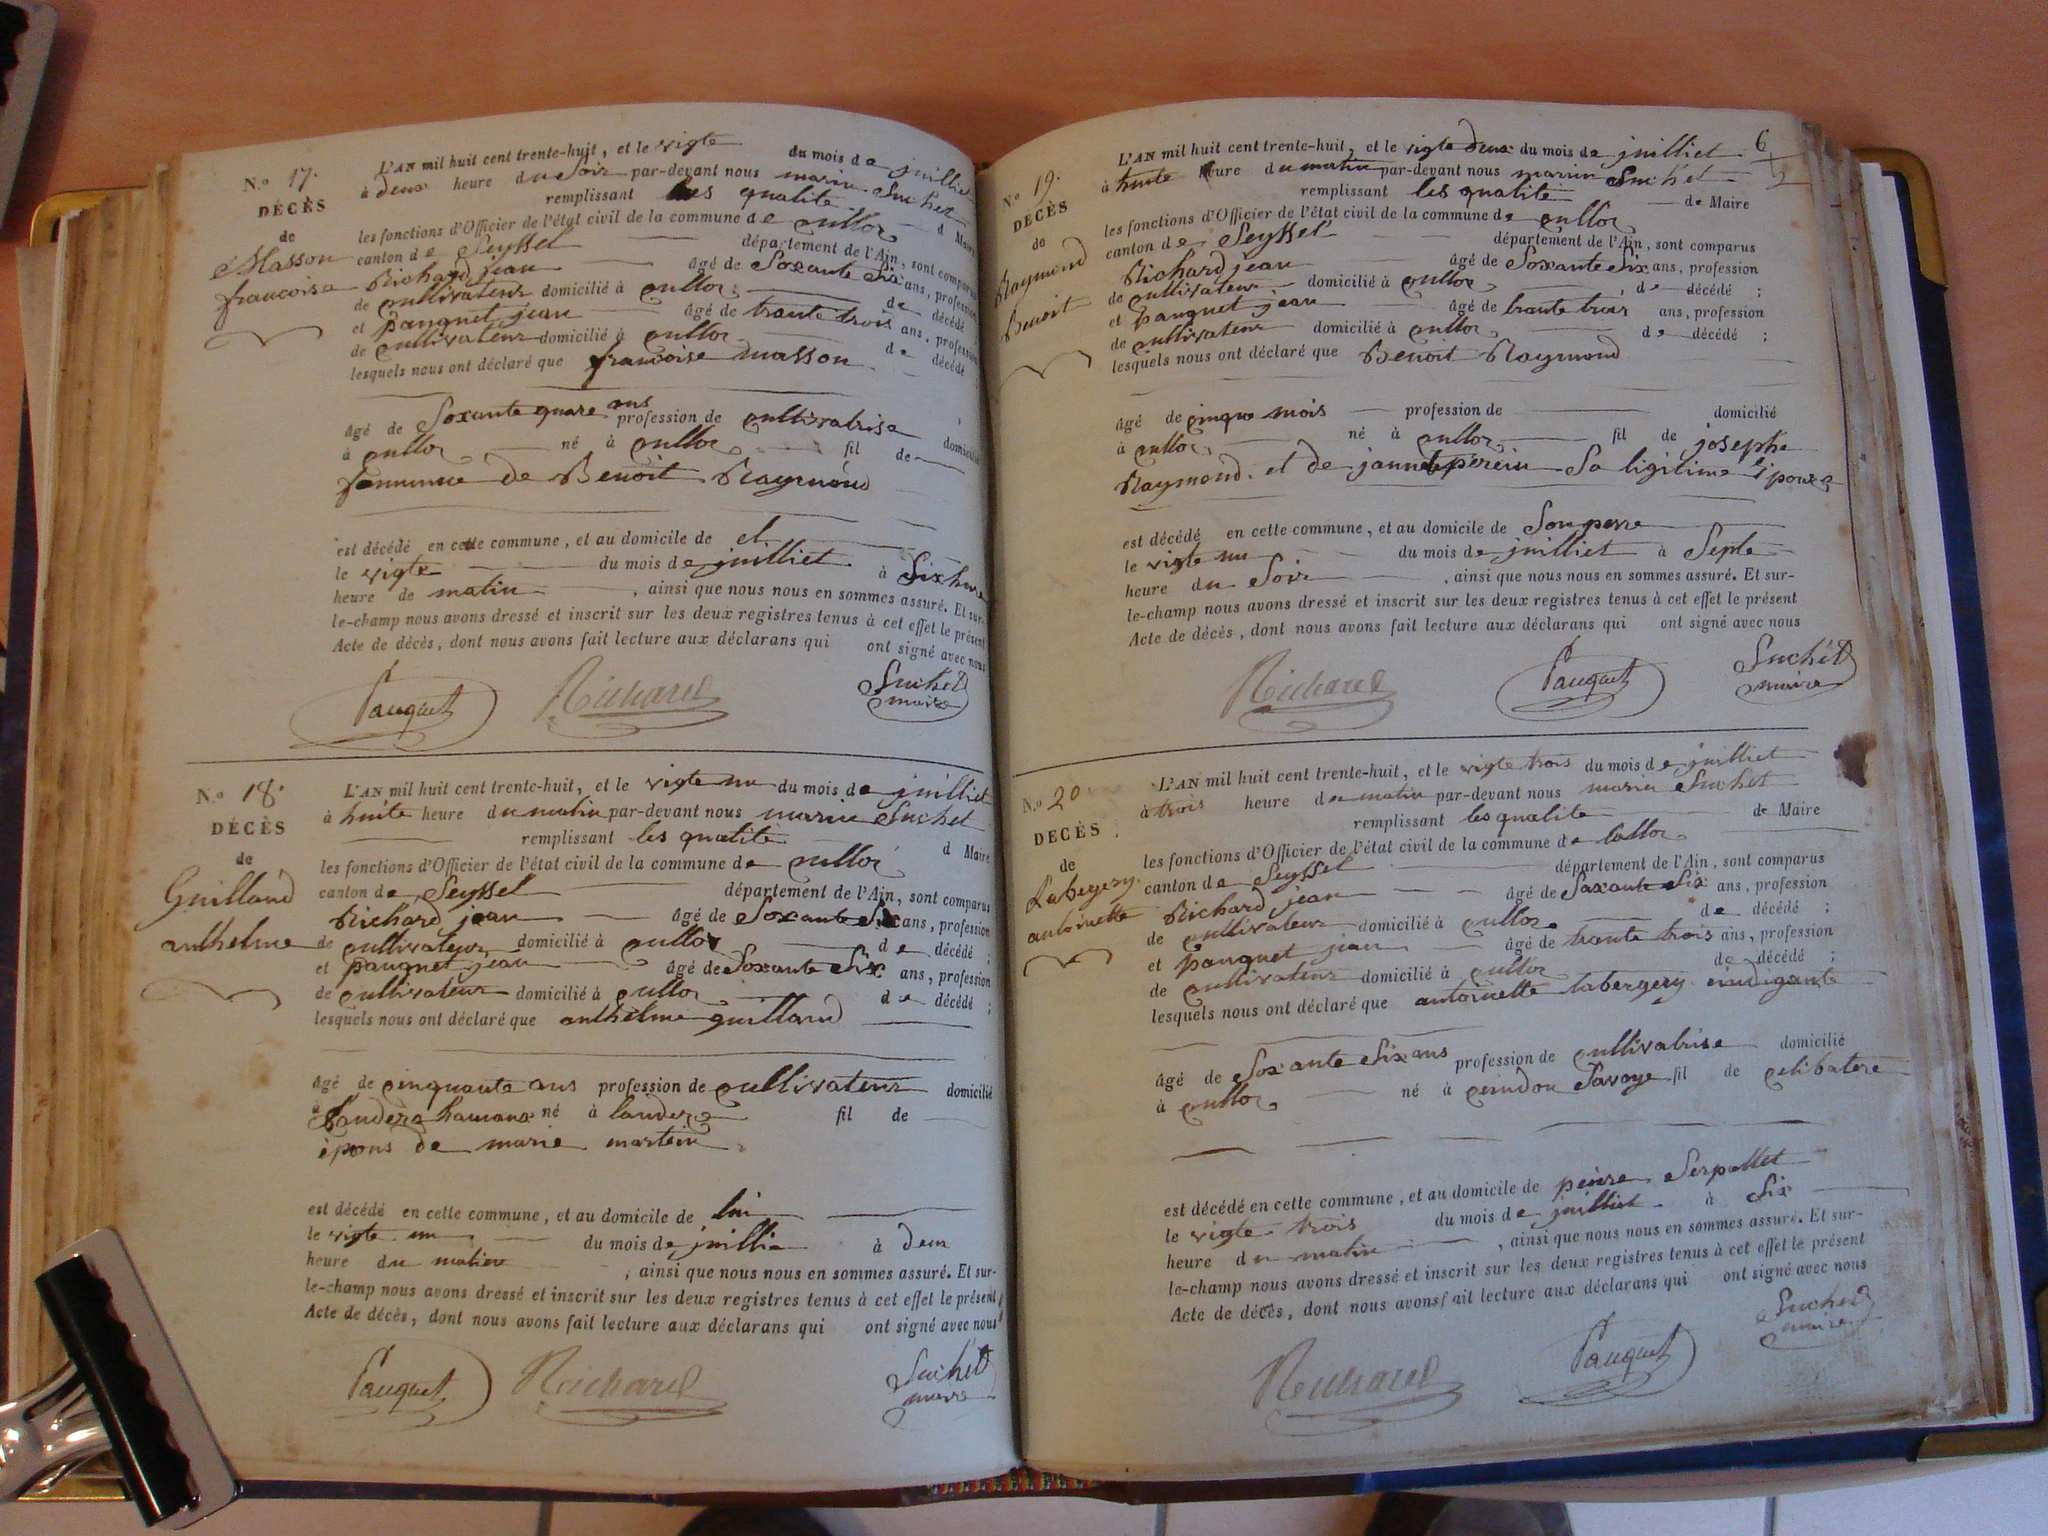 N.o 17.
DÉCÈS
de
Masson
francoise
L'AN mil huit cent trente-huit, et le vigte du mois de juilliet
à deux heure du Soir par-devant nous marin Suchet
remplissant les qualite d Maire
les fonctions d'Officier de l'état civil de la commune de culloz
canton de Seyssel département de l'Ain, sont comparus
Richard jean âgé de Soxante Six ans, profession
de cullivateur domicilié à culloz de décédé ;
et pauquet jean âgé de trante trois ans, profession
de cullivateur domicilié à culloz de décédé ;
lesquels nous ont déclaré que francoise masson
âgé de Soxante quare ans profession de cullivatrise domicilié
à culloz né à culloz fil de
femme de Benoit Raymond
est décédé en cette commune, et au domicile de el
le vigte du mois de juilliet à Six hure
heure de matin, ainsi que nous nous en sommes assuré. Et sur-
le-champ nous avons dressé et inscrit sur les deux registres tenus à cet effet le présent
Acte de décès, dont nous avons fait lecture aux déclarans qui ont signé avec nous
Pauquet Richard Suchet
maire
N.o 18.
DÉCÈS
de
Guilland
anthelme
L'AN mil huit cent trente-huit, et le vigte un du mois de juilliet
à huite heure du matin par-devant nous marin Suchet
remplissant les qualite d Maire
les fonctions d'Officier de l'état civil de la commune de culloz
canton de Seyssel département de l'Ain, sont comparus
Richard jean âgé de Soxante Six ans, profession
de cullivateur domicilié à culloz de décédé ;
et pauquet jean âgé de Soxante Six ans, profession
de cullivateur domicilié à culloz de décédé ;
lesquels nous ont déclaré que anthelme guilland
âgé de cinquante ans profession de cullivateur domicilié
à né à fil de
épous de marie martein
est décédé en cette commune, et au domicile de lui
le vigte un du mois de juillie à deux
heure du matin, ainsi que nous nous en sommes assuré. Et sur-
le-champ nous avons dressé et inscrit sur les deux registres tenus à cet effet le présent
Acte de décès, dont nous avons fait lecture aux déclarans qui ont signé avec nous
Pauquet Richard Suchet
maire
6
N.o 19.
DÉCÈS
de
Raymond
Benoit
L'AN mil huit cent trente-huit, et le vigte deux du mois de juilliet
à huite heure du matin par-devant nous marin Suchet
remplissant les qualite de Maire
les fonctions d'Officier de l'état civil de la commune de culloz
canton de Seyssel département de l'Ain, sont comparus
Richard jean âgé de Soxante Six ans, profession
de cullivateur domicilié à culloz, de décédé ;
et pauquet jean âgé de trante trois ans, profession
de cullivateur domicilié à culloz de décédé ;
lesquels nous ont déclaré que Benoit Raymond
âgé de cinque mois profession de domicilié
à culloz né à culloz fil de josephe
Raymond et de sa ligitime épouse
est décédé en cette commune, et au domicile de Son perre
le vigte un du mois de juilliet à Septe
heure du Soir, ainsi que nous nous en sommes assuré. Et sur-
le-champ nous avons dressé et inscrit sur les deux registres tenus à cet effet le présent
Acte de décès, dont nous avons fait lecture aux déclarans qui ont signé avec nous
Richard Pauquet Suchet
maire
N.o 20
DÉCÈS
de
Labegery
antoinette
L'AN mil huit cent trente-huit, et le vigte trois du mois de juilliet
à trois heure du matin par-devant nous marin Suchet
remplissant les qualite de Maire
les fonctions d'Officier de l'état civil de la commune de culloz
canton de Seyssel département de l'Ain, sont comparus
Richard jean âgé de Saxante Six ans, profession
de cullivateur domicilié à culloz de décédé ;
et pauquet jean âgé de trante trois ans, profession
de cullivateur domicilié à culloz de décédé ;
lesquels nous ont déclaré que antoinette labergery eindigante
âgé de Soxante Six ans profession de cullivatrise domicilié
à culloz né à Savoye fil de celibatere
est décédé en cette commune, et au domicile de peirre Serpollet
le vigte trois du mois de juilliet à Six
heure du matin, ainsi que nous nous en sommes assuré. Et sur-
le-champ nous avons dressé et inscrit sur les deux registres tenus à cet effet le présent
Acte de décès, dont nous avons fait lecture aux déclarans qui ont signé avec nous
Richard Pauquet Suchet
maire